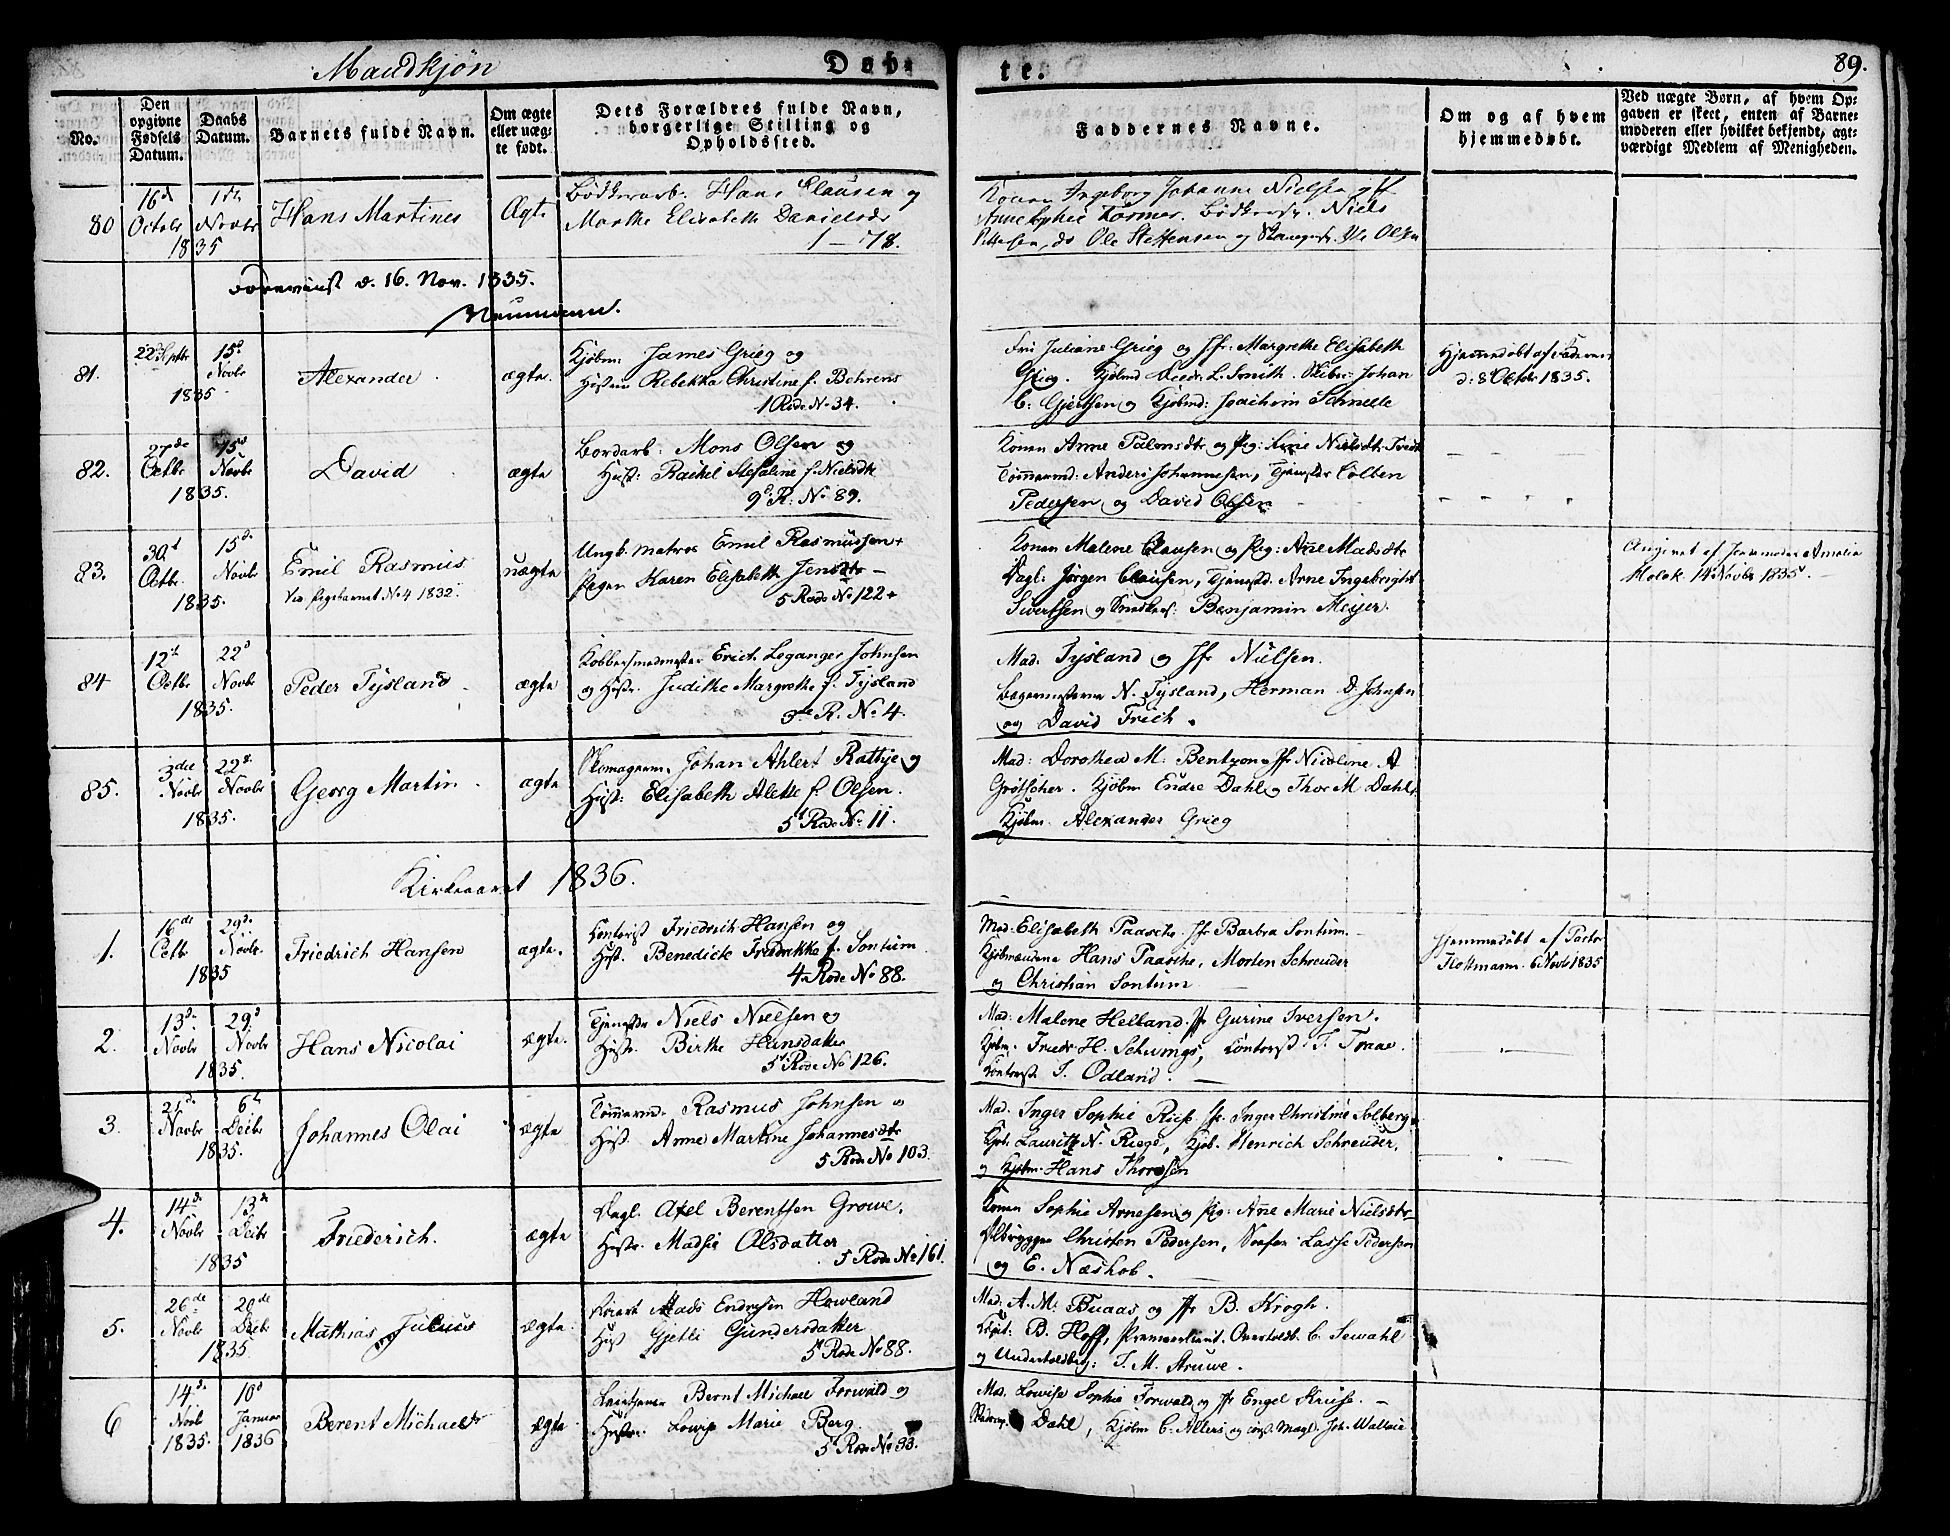 Mandkjøn
Døb-
te.
89.
No.
Den opgivne Fødsels Datum.
Daabs Datum.
Barnets fulde Navn.
Om ægte eller uæg-
te født.
Dets Forældres fulde Navn,
borgerlige Stilling og
Opholdssted.
Faddernes Navne.
Om og af hvem
hjemmedøbt.
Ved uægte Børn, af hvem Op-
gaven er skeet, enten af Barne-
moderen eller hvilket bekjendt, agt-
værdigt Medlem af Menigheden.
80
16d Octobr
1ste Novbr
1835
Hans Martines
Ægte
Bødkersv. Hans Clausen og
Marthe Elisabeth Danielsdr
1 - 78.
Konen Ingeborg Johanne Nielsen, Jf
Anne Sophie Tormer. Bødkersv. Niels
Pettersen, do Ole Steffensen og Ole Olsen
Forevist d. 16. Nov. 1835.
Neumann.
81.
22d Septbr
15d Novbr
1835
Alexander
ægte.
Kjøbm: James Grieg og
Hustru Rebekka Christine f. Behrens
1 Rode No 34.
Fru Juliane Grieg og Jfr: Margrethe Elisabeth
Grieg. Kjøbmd Diedr. L. Smith. Skibsc: Johan
C. Gjertsen og Kjøbmd: Joachim Schnelle
Hjemmedøbt af Faderen
d: 8 Octbr 1835.
82.
27de Octbr
15d Novbr
1835.
David
ægte
Bordarb: Mons Olsen og
Hust: Rachel Stefaline f. Nielsdtr
9d R. No 89.
Konen Anne Palmsdtr og Pig: Line Nielsdtr
Tømmermd: Anders Johannesen, Tjenestdr Colben
Pedersen og David Olsen
83.
30t Octbr.
15de Novbr
1835.
Emil Rasmus
No 4 1832.
uægte
Ungk. Matros Emil Rasmussen +
Pigen Karen Elisabeth Jensdtr -
5 Rode No 122 +
Konen Malene Clausen og Pig: Ane Madsdtr
Dagl: Jørgen Clausen, Tjenestd. Arne Ingebrigtst
Sivertsen og Benjamin Meijer.
Angivet af Jordemoder Amalia
Holck. 14 Novbr 1835.
84
12te Octbr
22d Novbr
1835.
Peder Tysland
ægte
Kobbersmedmester Erich Leganger Johnsen
og Hustr. Judithe Margrethe f. Tysland
3de R. No 4.
Mad. Tysland og Jfr Nielsen.
Bagermesterne N. Tysland, Herman D. Johnsen
og David Frich.
85.
3die Novbr
22d. Novbr
1835.
Georg Martin
ægte
Skomagerm. Johan Ahlert Rattje og
Hust: Elisabeth Alette f. Olsen.
5t Rode No 11.
Mad: Dorothea M. Bentzon Jfr Nicoline A
Grøtscher. Kjøbm Endre Dahl og Thor M Dahl,
Kjøbm. Alexander Grieg
Kirkeaaret 1836.
1.
16de Octbr
29de Novbr.
1835
Friedrich Hansen
ægte.
Contorist Friedrich Hansen og
Hust. Benedicte Friedrikke f. Sontum
4de Rode No 88.
Mad. Elisabeth Paasche. Jfr Barbra Sontum.
Kjøbmændene Hans Paasche, Morten Schreuder
og Christian Sontum
Hjemmedøbt af Pastor
Flottmann. 6 Novbr 1835
2.
13de Novbr
29d Novbr
1835.
Hans Nicolai
ægte.
Tjenestdr Niels Nielsen og
Hust. Birthe Hansdatter
5t Rode No 126.
Mad: Malene Helland. Jfr Gurine Iversen.
Kjøbm. Friedr. H. Contorist T. Traae.
Contorist J. Odland.
3.
21de Novbr
6te Decbr
1835.
Johannes Olai
ægte
Tømmermd. Rasmus Johnsen og
Hust. Anne Martine Johannesdtr
5 Rode No 103.
Mad. Inger Sophie Riese Jfr. Inger Christine Solberg,
Kjøb. Lauritz N. Riege, Kjøb. Henrich Schreuder,
og Kjøbm. Hans Thoresen
4.
14de Novbr
13de Decbr
1835
Friederich.
ægte
Dagl. Axel Berentsen Growe.
Hustr. Madsie Olsdatter
5 Rode No 161.
Konen Sophie Arnesen og Pig: Ane Marie Nielsdtr
Ølbrygger Christen Pedersen, Lasse Pedersen
og E. Næshob.
5.
26de Novbr
20de Decbr
1835.
Mathias Julius
ægte
Mads Endresen Howland
Hust. Gjetli Gundersdatter
5t Rode No 88.
Mad. A. M. Buaas og Jfr B. Krogh.
Capit: B. Hoff, Premierlieut. Overtoldb. C. Sewahl
og Undertoldbetj: J. M. Aruwe.
6
14de Novb 1835.
10d Januar 1836
Berent Michael
ægte
Berent Michael Forwald og
Hustr. Lowise Marie Berg.
5t Rode No 93.
Mad. Lowise Sophie Forwald og Jfr Engel Kruse.
Dahl, Kjøbm C. Ahlers og Joh. Wallace